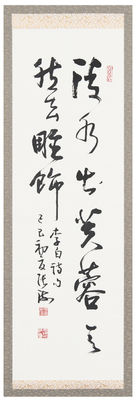 清水出芙蓉天
然去雕飾
李白詩句
己巳初夏張海